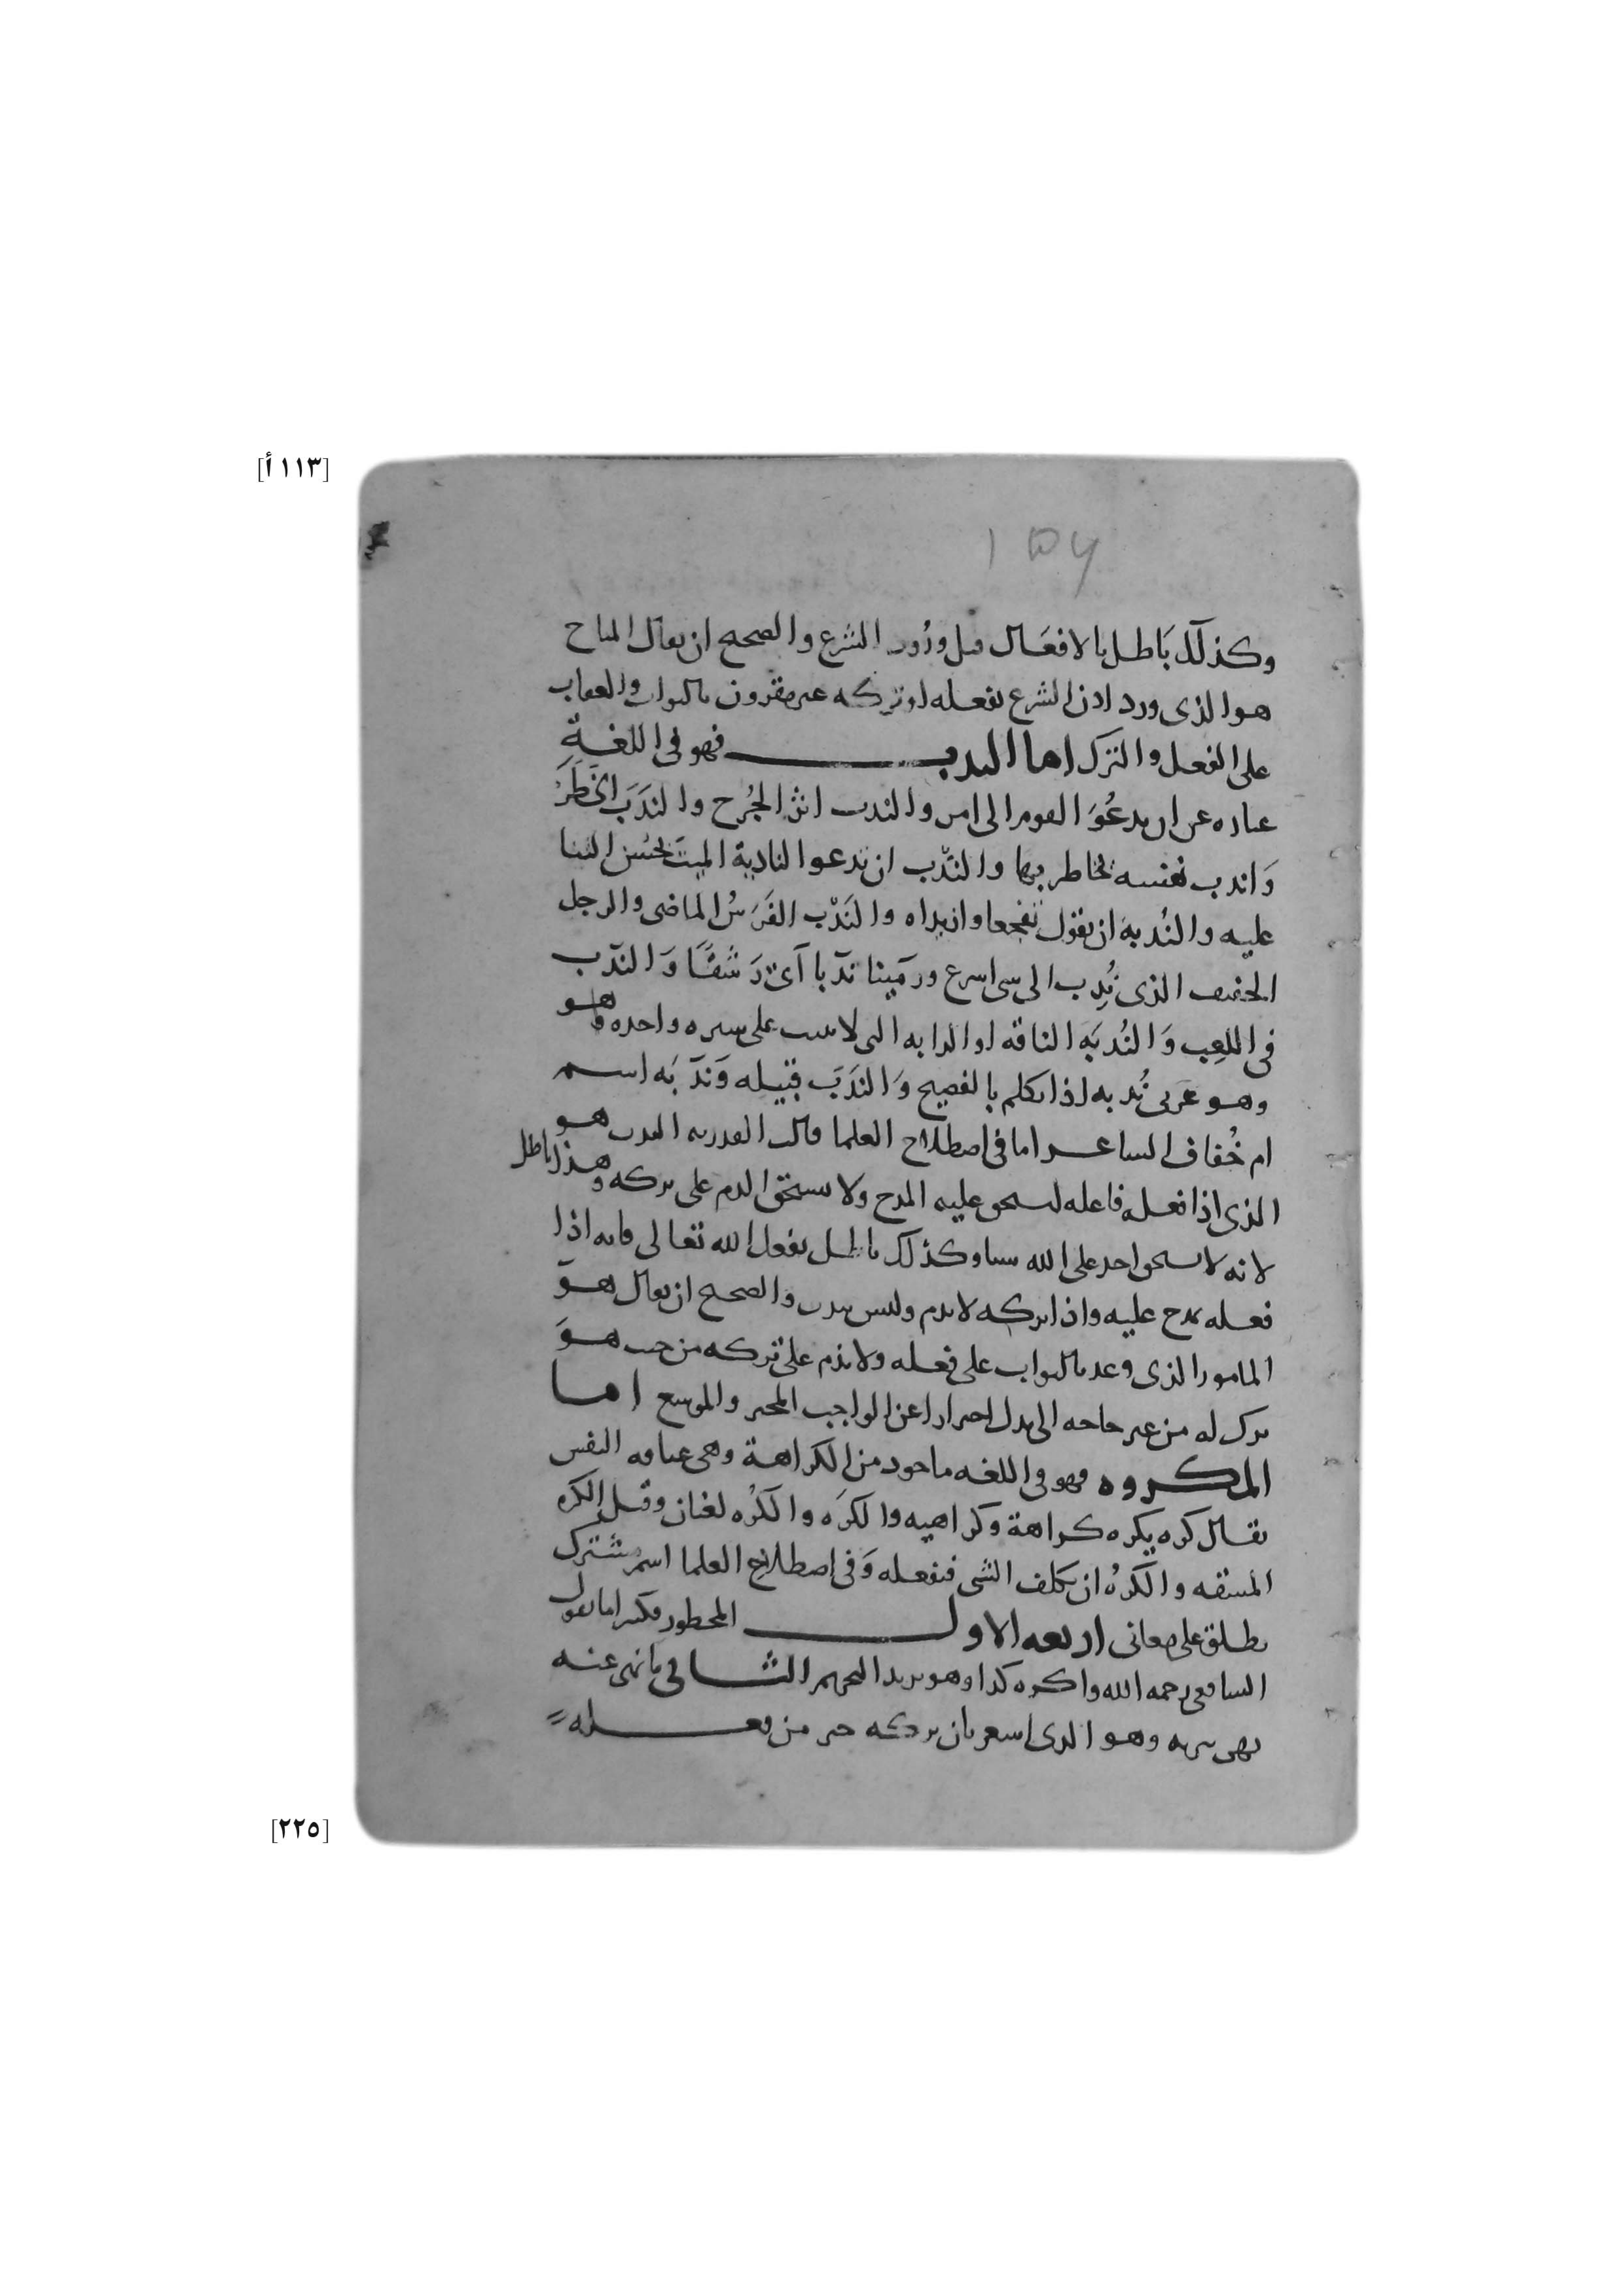 [١١٣ أ]
١٥٧
وكذلك بَاطل بالافعَال قبل وُرُود الشرع والصحيح ان يقال المباح
هو الذى ورد اذن الشرع بفعله او تركه غير مقرون بالثواب والعقاب
على الفعل والترك اما الندب فهو فى اللغةِ
عبارة عن ان يدعُوَ القوم الى امر والندب اثر الجُرح والندَبَ الخطَرُ
وَاندب نفسه يخاطر بها والندْب ان تدعوا النادبة الميتَ بحُسن الثنا
عليه والنُدبة ان تقول تفجعا وازيداه والنَدْب الفَرَسُ الماضى والرجل
الخفيف الذى نُدِب الى شى اسرع ورمَينا ندَبا اىْ رَشقًا وَالندَب
فى اللعِب وَالنُدبَه الناقه او الدابه التى لا تثبت على سيره واحده وهو
وهو عربى نُدبه اذا تكلم بالفصيح وَالندَبَ قبيله وَندَبَه اسم
ام خُفاف الشاعر اما فى اصطلاح العلما قالت القدريه الندب هو
الذى اذا فعله فاعله استحق عليه المدح ولا يستحق الذم على تركه وهذا باطل
لانه لا يستحق احد على الله شيا وكذلك باطل بفعل الله تعالى فانه اذا
فعله يمدح عليه واذا تركه لا يذم وليس بندب والصحيح ان يقال هوَ
المامور الذى وعد بالثواب على فعله ولا يذم على تركه من حيث هوَ
ترك له من غير حاجه الى بدل احترازا عن الواجب المخير والموسع اما
المكروه فهو فى اللغه ماخوذ من الكراهة وهى عيافه النفس
يقال كره يكره كراهة وكراهيه والكَرَه والكُرْه لغتان وقيل الكره
المشقه والكَرْهُ ان تكلف الشى فتفعله وَفى اصطلاح العلما اسم مشترك
يطلق على معانى اربعه الاول المحظور فكثيرا ما يقول
الشافعى رحمه الله واكره كذا وهو يريد التحريم الثانى ما نهى عنه
نهى تنزيه وهو الذى اشعر بان تركه خير من فعله
[٢٢٥]